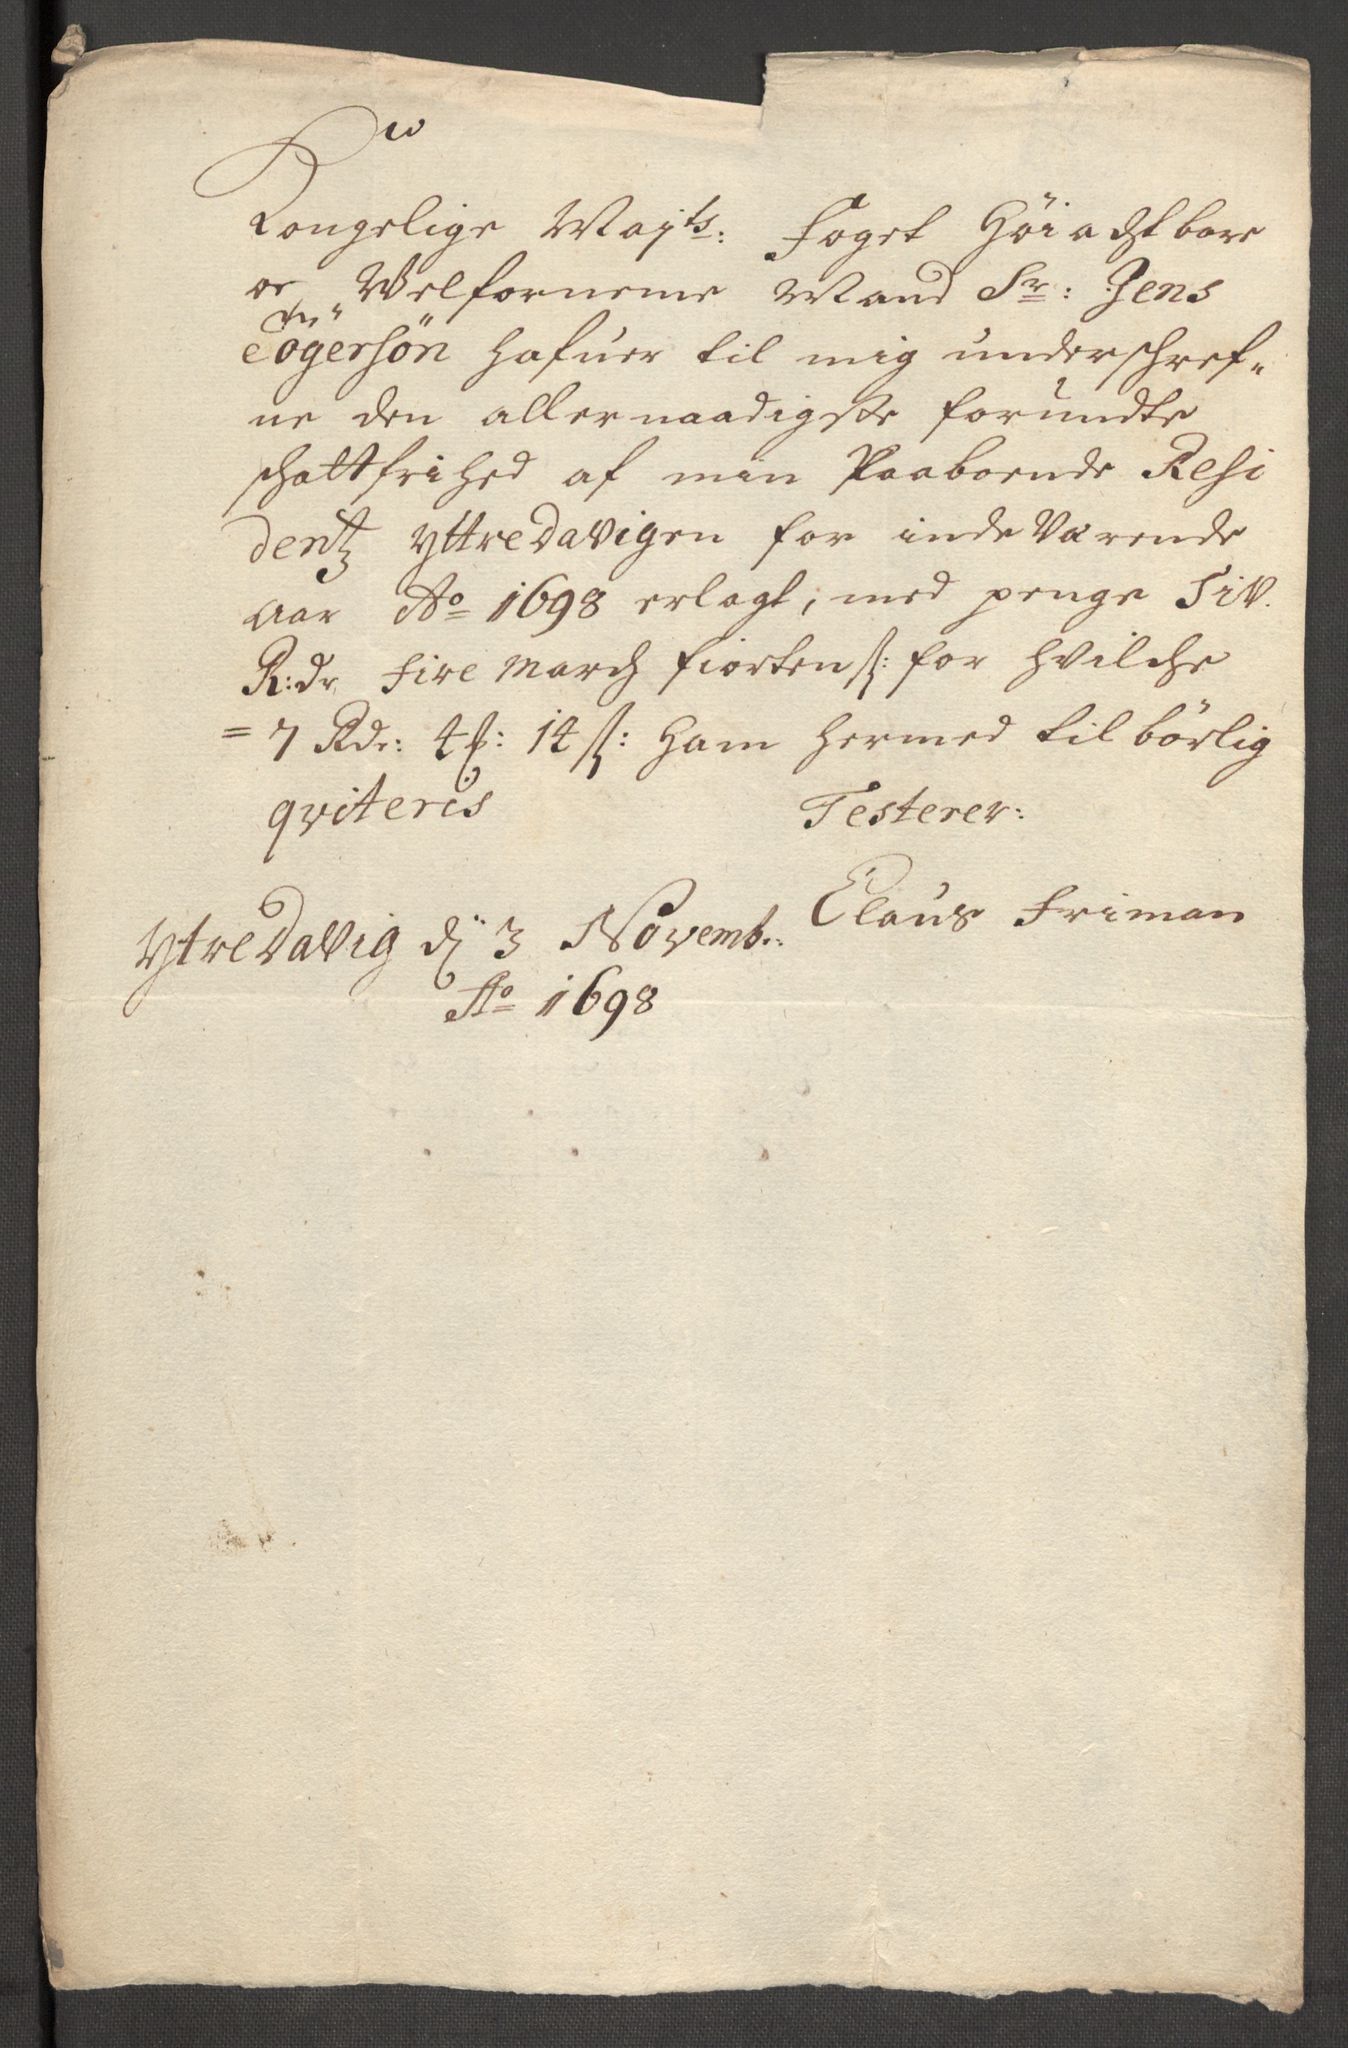 Kongelige Mayts: Foget Höiacht bare
oc Velforneme Mand Sr: Jens
Tögersön hafuer til mig underschref=
ne den allernaadigste forundte
schattfrihed af min Paaboende Resi
dentz Yttredavigen for indeVarende
aar Ao 1698 erlagt, med penge Siv.
R:dr fire march fiorten ß: for hvilche
= 7 Rdr: 4 ꝑ: 14 ß: ham hermed tilbörlig
qviteris Testerer:
Claus Friman
Ytredavig dj 3 Novemb:
Ao 1698